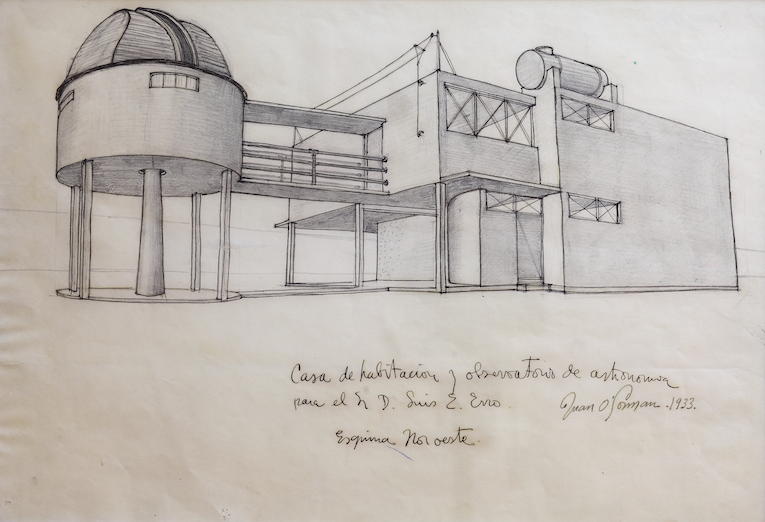 Casa de habitacion y observatorio de astronomia
para el Sr D. Luis E. Erro. Juan O'Gorman . 1933.
Esquina Noroeste.